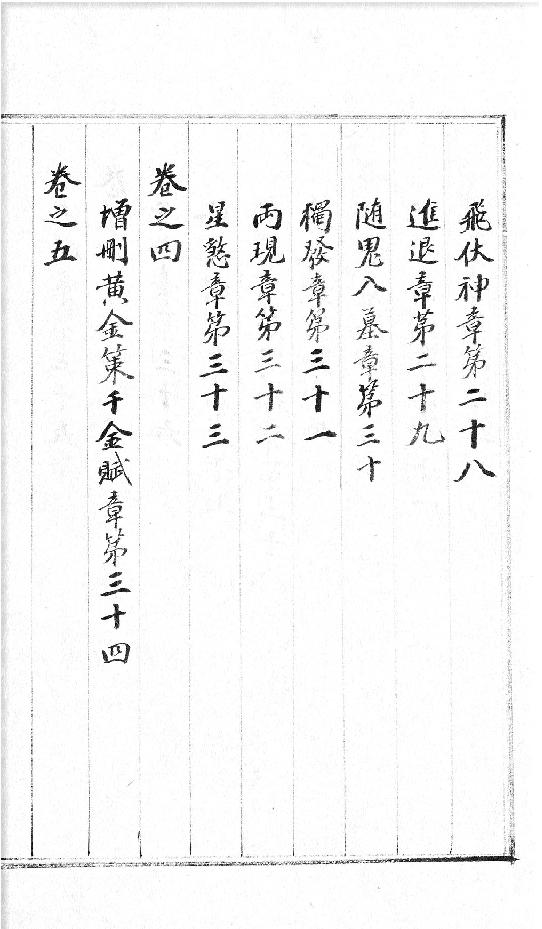 飛伏神章第二十八
進退章第二十九
随鬼入墓章第三十
獨發章第三十一
両現章第三十二
星煞章第三十三
卷之四
增刪黄金策千金賦章第三十四
卷之五